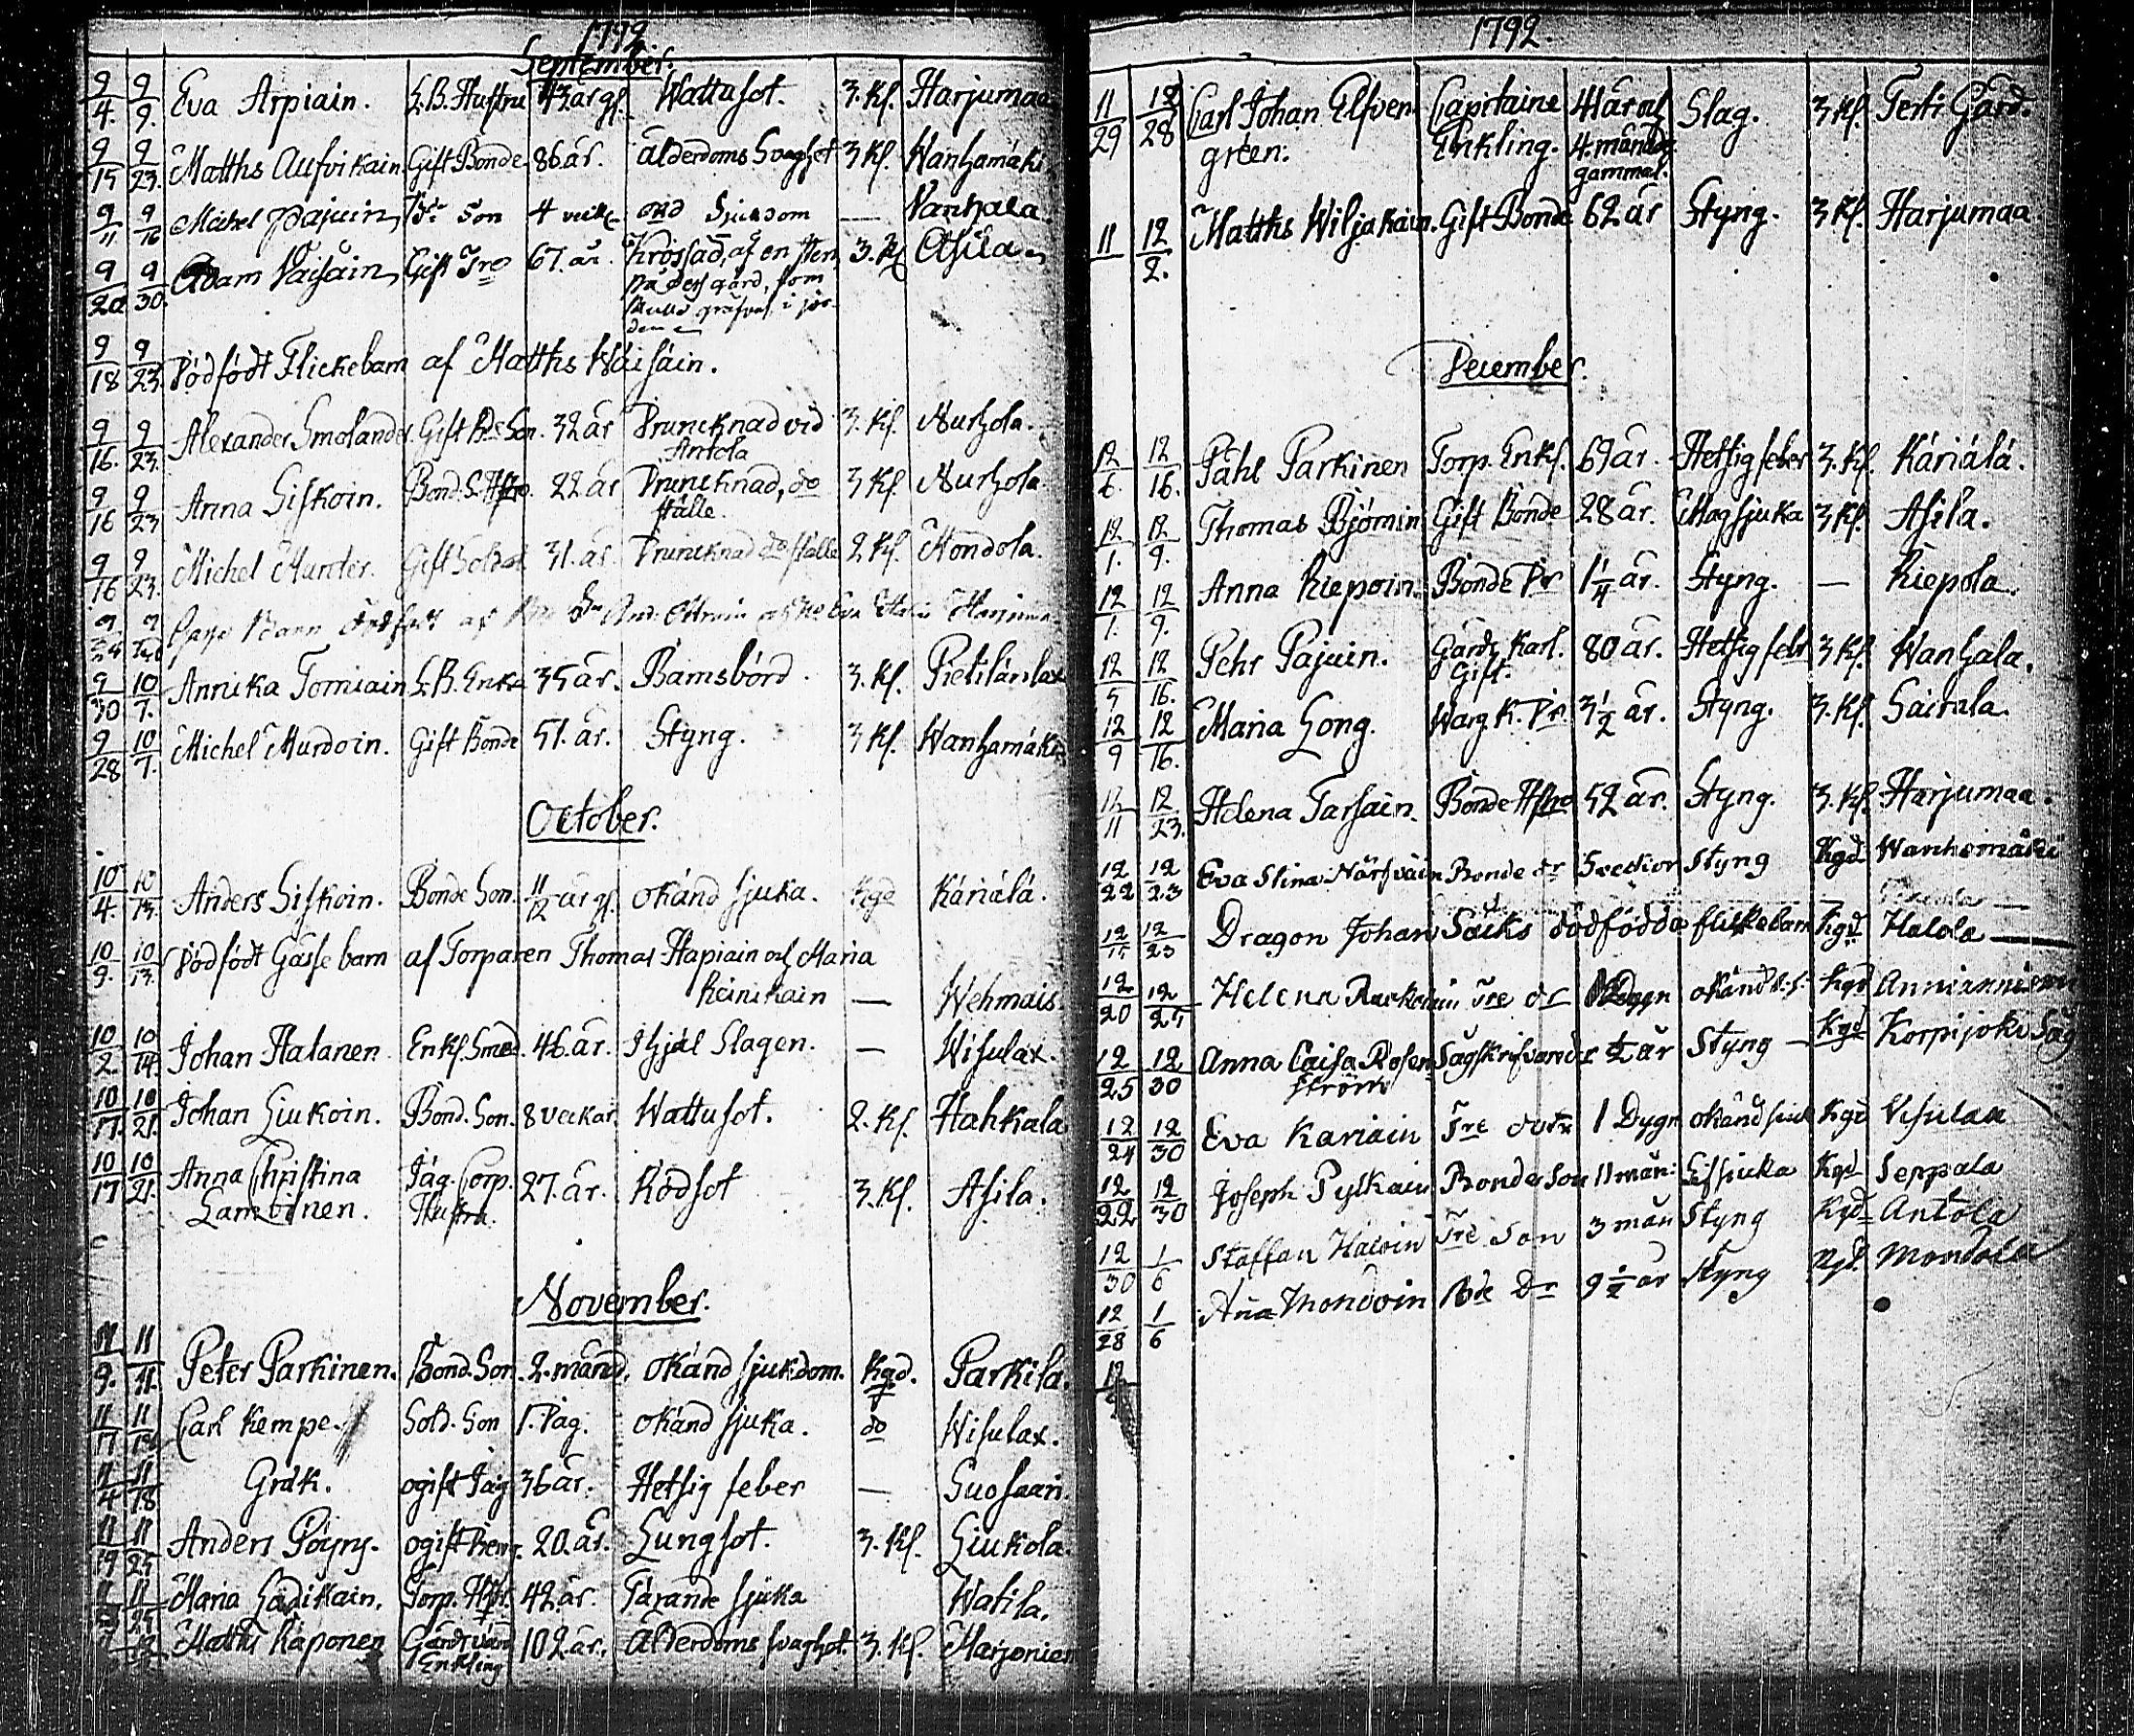 1792.
September.
9/4. 9/9. Eva Arpiain. L.B. Hustru 43. år gl. Wattusot. 3. Kl. Harjumaa
9/15 9/23. Matths Aufvikain. Gift Bonde 86 år. ålderdoms svaghet 3 Kl. Wanhamäki
9/11 9/16 Michel Pajuin, son 4 veck okd Sjukdom — Vanhala
9/20 9/30. Adam Vaisain, Gift Tre 67. år. Krossad, af en sten 3. Kl Asila
på dess gärd, som
skulle grafvas i jor-
den
9/18 9/23. Dödfödt Flickebarn af Matths Wäisäin.
9/16. 9/23. Alexander Smolander. Gift Bde Son. 32 år Druncknad vid 3. Kl. Nurhola.
Antola
9/16 9/23 Anna Siskoin. Bond. S. Hstro. 22 år Druncknad, do 3 Kl. Nurhola
ställe.
9/16 9/23. Michel Hunter. Gift Soldat 31. år. Druncknad do ställe 2 Kl. Mondola.
Barn dödfödt af
9/30 10/7. Annika Torniain L.B. Enka 35 år. Barnsbörd. 3. Kl. Pietilänlax
9/28 10/7. Michel Murdoin. Gift Bonde 51. år. Styng. 3 Kl. Wanhamäki
October.
10/4. 10/13. Anders Siskoin. Bonde Son. 11/12 år gl. okänd sjuka. Kgd Käriälä.
10/9. 10/13. Dödfödt Gåsse barn af Torparen Thomas Hapiain och Maria
Keinikain — Wehmais.
10/2. 10/14. Johan Halanen. Enkl. Smed. 46. år. Ihjäl Slagen. — Wisulax.
10/17. 10/21. Johan Liukoin. Bond. Son. 8 veckar. Wattusot. 2. Kl. Hahkala
10/17 10/21. Anna Christina Jäg. Corp. 27. år. Rödsot 3. Kl. Asila.
Lamboinen. Hustru.
November.
11/9. 11/11. Peter Parkinen. Bond. Son. 2. månd. okänd sjukdom. Kgd. Parkila.
11/17 11/18 Carl Kempe. Sold. Son 1. Dag. okänd sjuka. do Wisulax.
11/4 11/18 Gråk. ogift Jäg 36 år. Hetsig feber — Suosaari.
11/19 11/25 Anders Pöyry. ogift Dreng. 20. år. Lungsot. 3. Kl. Liukola.
11/25 Maria Hädikain. Torp. Hstr. 42. år. Tärande sjuka Watila.
Matths Kaponen Gårdsvärd 102. år. Ålderdoms svaghet. 3. Kl. Marjonien
Enkling
1792.
11/29 12/28 Carl Johan Elfven- Capitaine 41 år och Slag. 3 Kl. Terti Gård.
green. Enkling. 4. månader
gammal.
11 12/2. Matths Wiljakain. Gift Bonde 62 år Styng. 3 Kl. Harjumaa
December.
12/6. 12/16. Påhl Parkinen Torp. Enkl. 69 år. Hetsig feber 3. Kl. Käriälä.
12/1. 12/9. Thomas Björnin Gift Bonde 28 år. Magsjuka 3 Kl. Asila.
12/1. 12/9. Anna Riepoin. Bonde Dr 1 1/4 år. Styng. — Riepola.
12/5 12/16. Pehr Pajuin. Gårds Karl. 80 år. Hetsig feber 3 Kl. Wanhala.
Gift.
12/9 12/16. Maria Long. Warg K. Dr. 3 1/2 år. Styng. 3. Kl. Sairala.
12/11 12/23. Helena Tarsain. Bonde Hstro 52 år. Styng. 3. Kl. Harjumaa.
12/22 12/23 Eva Stina Närhväin Bonde dr 5 veckor Styng Kgd Wanhamäki
12/15 12/23 Dragon Johan Säcks dödfödda flickebarn Kgd Halola —
12/20 12/25 Helena Tre dr Dygn okänd s. Kgd Annianniemi
12/25 12/30 Anna Caisa Rosen- Sågskrifvare dr 1/2 år Styng — Kgd Korpijoki Såg
ström
12/24 12/30 Eva Kariain Tre dottr 1 Dygn okänd siuk Kgd Visulax
12/22 12/30 Joseph Pylkäin Bonde Son 11 mån: Lissiuka Kgd Seppala
12/30 1/6 Staffan Haloin Tre Son 3 mån Styng Kgd Antola
12/28 1/6 Ana Mondoin Bde Dr 9 1/2 år Styng Kgd. Mondola
12